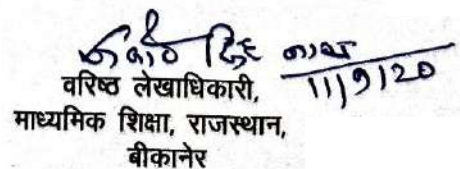 11/9/20
वरिष्ठ लेखाधिकारी,
माध्यमिक शिक्षा, राजस्थान,
बीकानेर